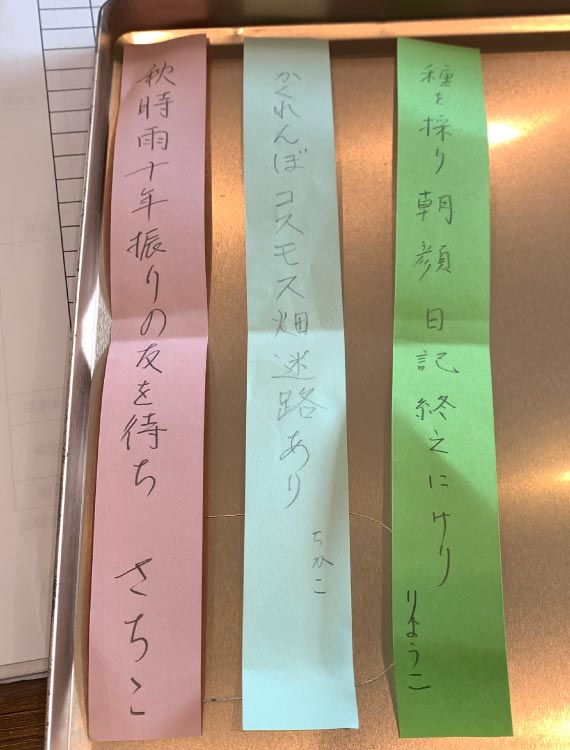 種を採り朝顔日記終えにけり
りょうこ
かくれんぼコスモス畑迷路あり
ちかこ
秋時雨十年振りの友を待ち
さちこ